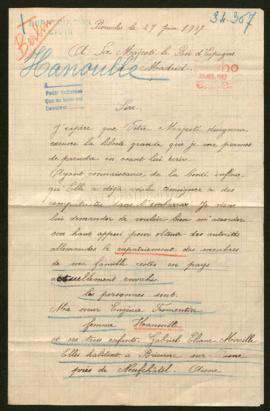 34.367
le 27 Juin 1917
A Sa Majesté le Roi d'Espagne
Hanoulle Madrid
Sire
J'espère que Votre Majesté daignera
excuser la liberté grande que je me permets
de prendre en osant lui écrire
Ayant connaissance de la bonté infinie
qu'Elle a déjà voulu témoigner à des
compatriotes dans l'embarras Je viens
lui demander de vouloir bien m'accorder
son haut appui pour obtenir des autorités
allemandes le rapatriement des membres
de ma famille restés en pays
actuellement envahi
Les personnes sont
Ma sœur Eugénie
femme Hanoulle
et ses trois enfants Gabriel Eliane
Elles habitent à sur
près de Neufchâtel Aisne